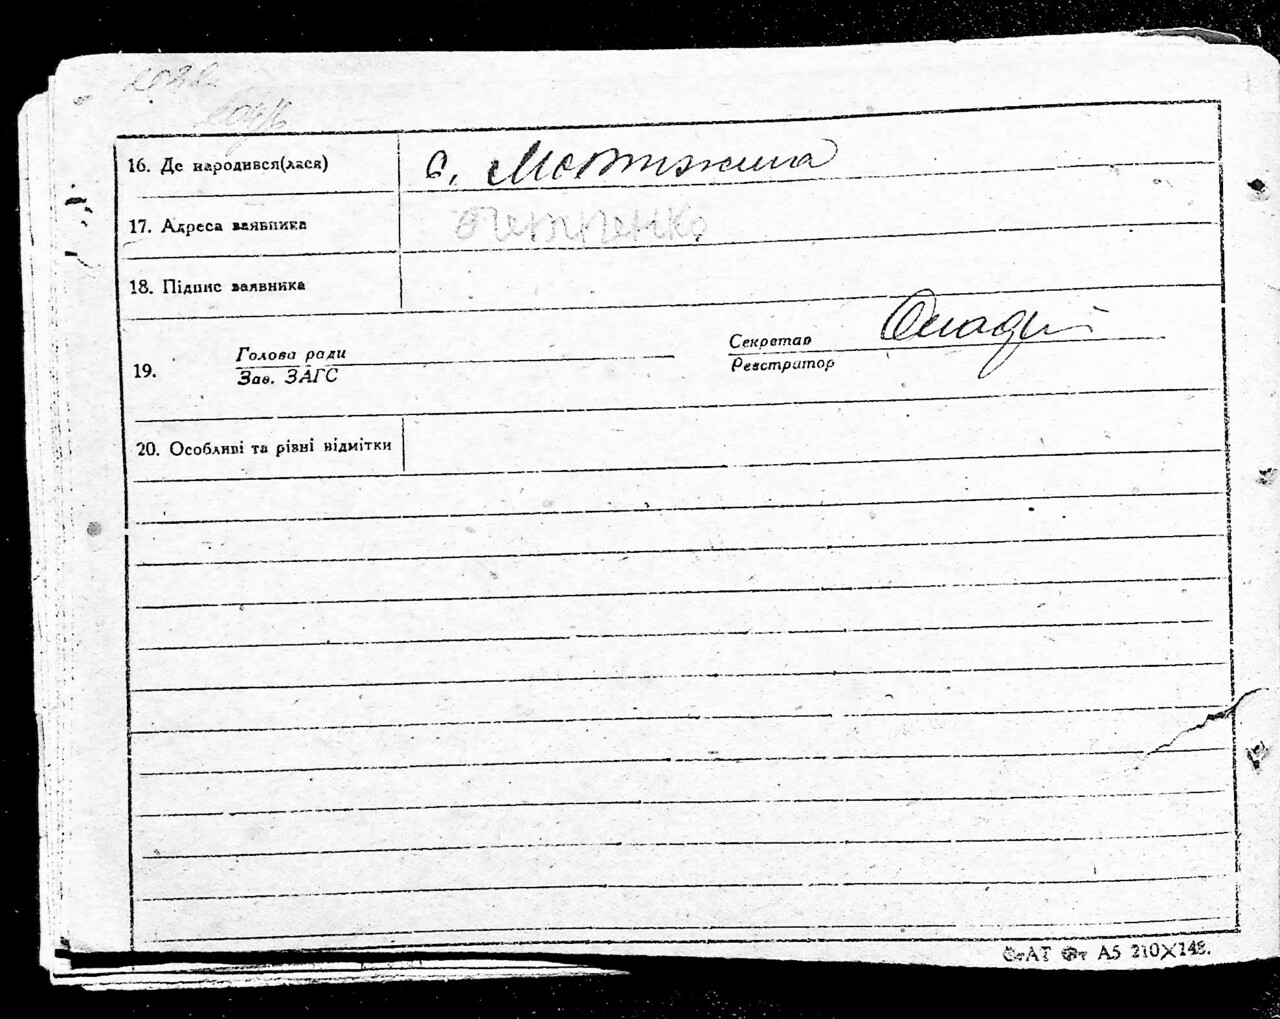 16. Де народився(лася) с. Мотижина
17. Адреса заявника
18. Підпис заявника
19. Голова ради
Зав. ЗАГС
Секретар
Реєстратор
20. Особливі та різні відмітки
СтАТ Фт А5 210×148.